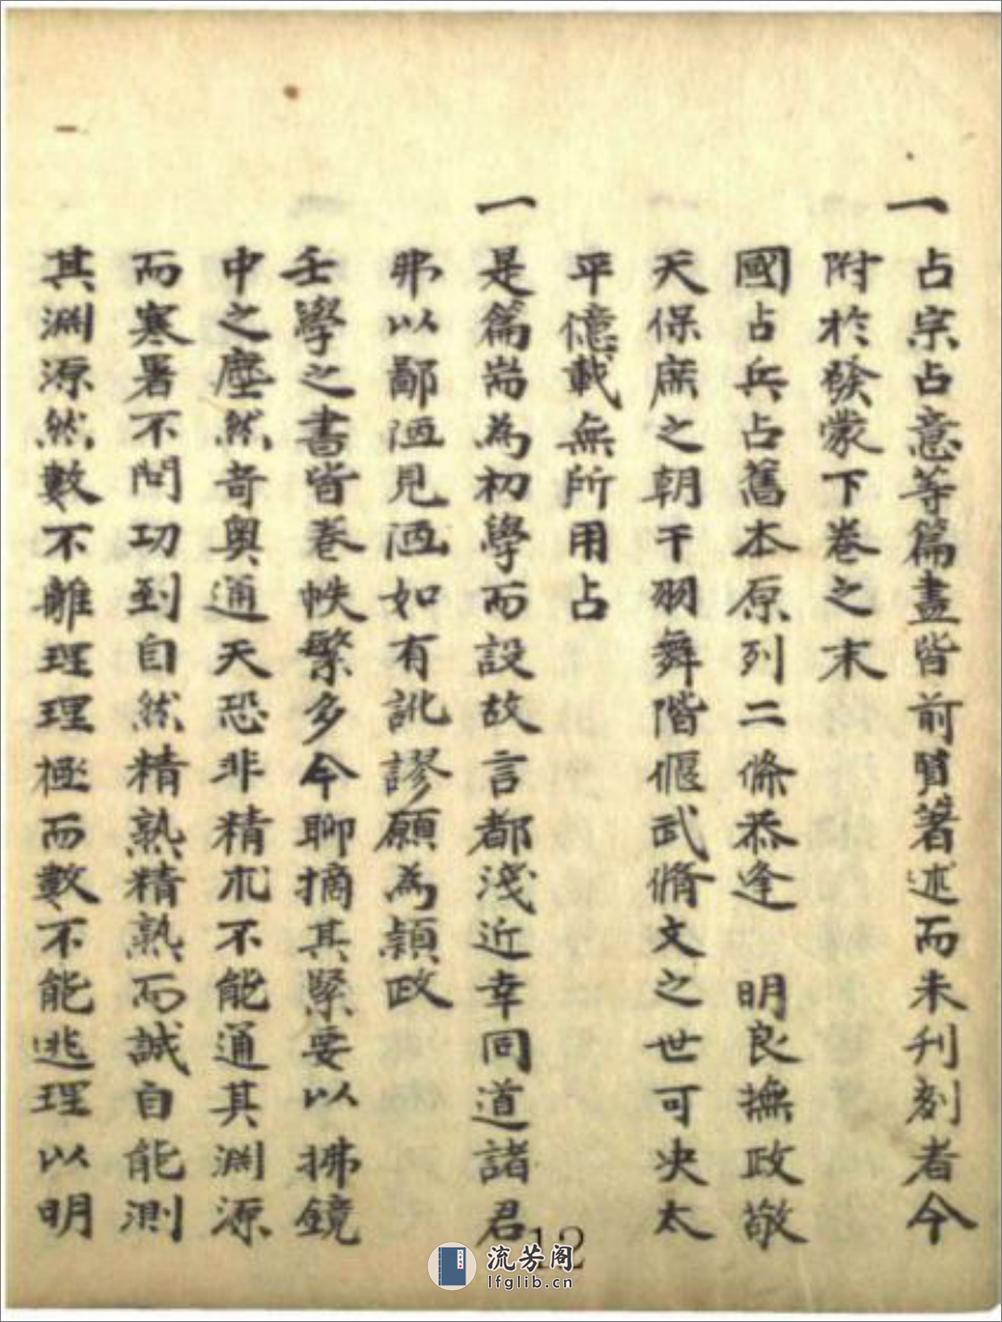 一占宗占意等篇盡皆前賢著述而未刋刻者今
附於發蒙下卷之末
國占兵占舊本原列二條恭逢 明良撫政敬
天保庶之朝干羽舞階偃武脩文之世可决太
平億載無所用占
一是篇耑為初學而設故言都淺近幸同道諸君
弗以鄙陋見陋如有訛謬願為頴政
壬學之書皆卷帙繁多今聊摘其緊要以拂鏡
中之塵然奇奥通天恐非精朮不能通其淵源
而寒暑不問功到自然精熟精熟而誠自能測
其淵源然數不離理理極而數不能逃理以明
12
流芳阁
lfglib.cn